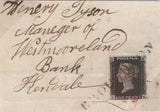 Henery Tyson
Maneger of
Westmoreland
Bank
Kendale